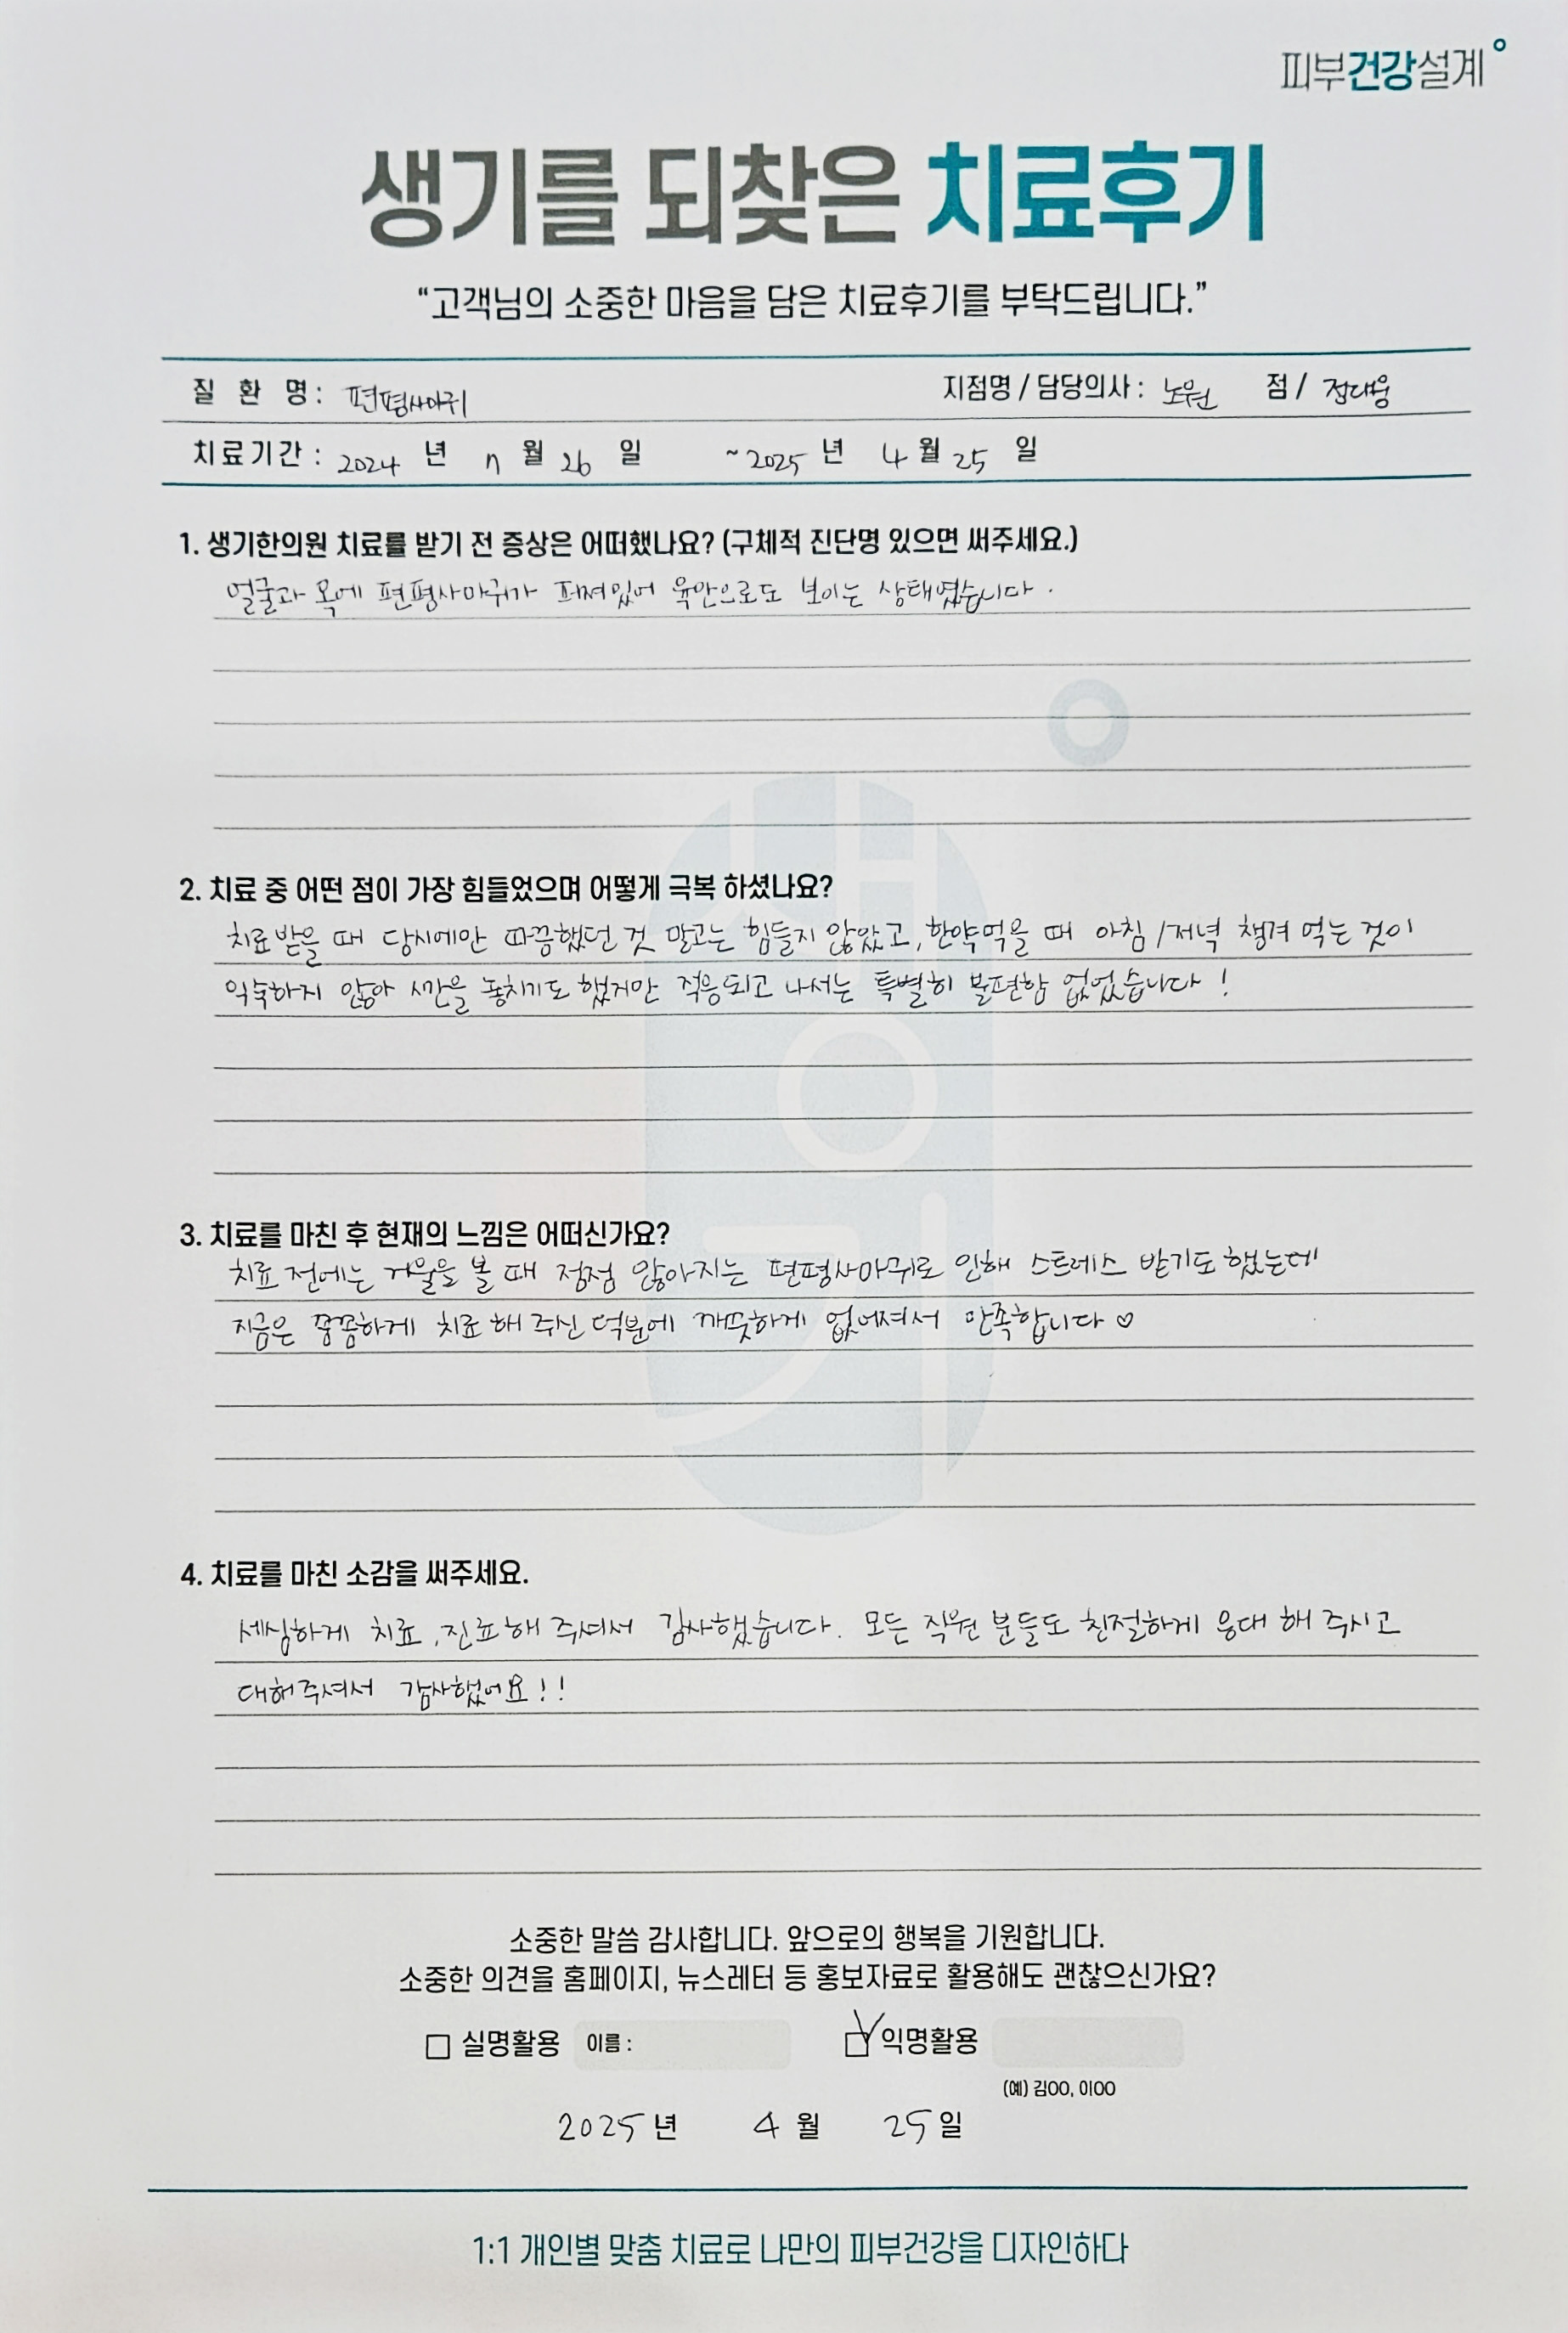 피부건강설계
생기를 되찾은 치료후기
“고객님의 소중한 마음을 담은 치료후기를 부탁드립니다.”
질 환 명 : 편평사마귀 지점명 / 담당의사 : 노원 점 / 정대웅
치료기간 : 2024 년 7 월 26 일 ~ 2025 년 4 월 25 일
1. 생기한의원 치료를 받기 전 증상은 어떠했나요? (구체적 진단명 있으면 써주세요.)
얼굴과 목에 편평사마귀가 퍼져있어 육안으로도 보이는 상태였습니다.
2. 치료 중 어떤 점이 가장 힘들었으며 어떻게 극복 하셨나요?
치료받을 때 당시에만 따끔했던 것 말고는 힘들지 않았고, 한약먹을 때 아침/저녁 챙겨 먹는 것이
익숙하지 않아 시간을 놓치기도 했지만 적응되고 나서는 특별히 불편함 없었습니다!
3. 치료를 마친 후 현재의 느낌은 어떠신가요?
치료 전에는 거울을 볼 때 점점 많아지는 편평사마귀로 인해 스트레스 받기도 했는데
지금은 꼼꼼하게 치료 해 주신 덕분에 깨끗하게 없어져서 만족합니다 ♡
4. 치료를 마친 소감을 써주세요.
세심하게 치료, 진료해 주셔서 감사했습니다. 모든 직원 분들도 친절하게 응대 해 주시고
대해주셔서 감사했어요!!
생기
소중한 말씀 감사합니다. 앞으로의 행복을 기원합니다.
소중한 의견을 홈페이지, 뉴스레터 등 홍보자료로 활용해도 괜찮으신가요?
실명활용 이름 : 익명활용
(예) 김OO, 이OO
2025 년 4 월 25 일
1:1 개인별 맞춤 치료로 나만의 피부건강을 디자인하다